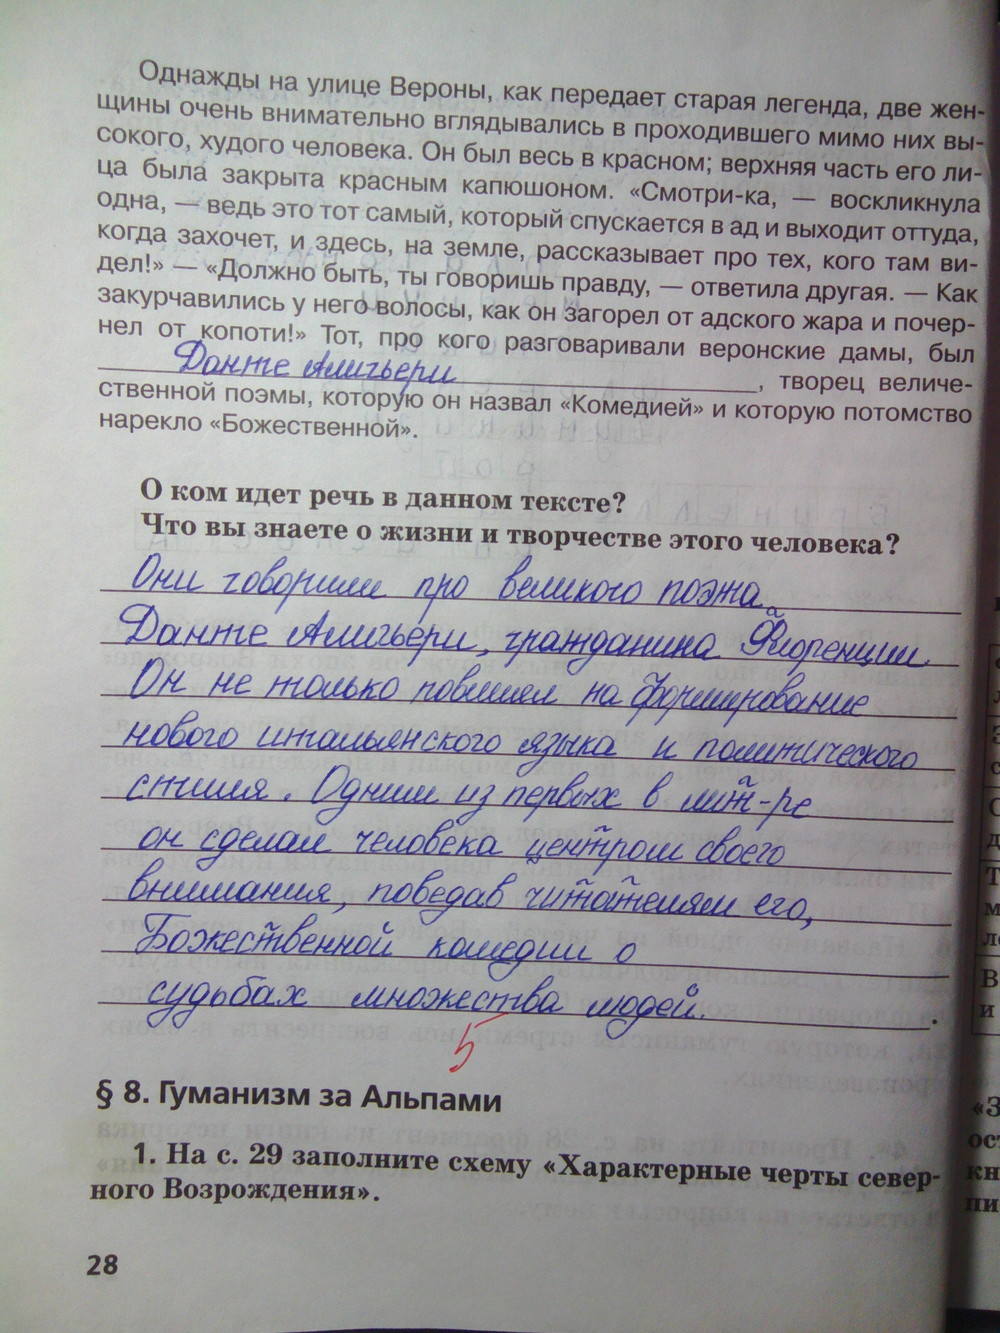 Однажды на улице Вероны, как передает старая легенда, две жен-
щины очень внимательно вглядывались в проходившего мимо них вы-
сокого, худого человека. Он был весь в красном; верхняя часть его ли-
ца была закрыта красным капюшоном. «Смотри-ка, — воскликнула
одна, — ведь это тот самый, который спускается в ад и выходит оттуда,
когда захочет, и здесь, на земле, рассказывает про тех, кого там ви-
дел!» — «Должно быть, ты говоришь правду, — ответила другая. — Как
закурчавились у него волосы, как он загорел от адского жара и почер-
нел от копоти!» Тот, про кого разговаривали веронские дамы, был
Данте Алигьери, творец величе-
ственной поэмы, которую он назвал «Комедией» и которую потомство
нарекло «Божественной».
О ком идет речь в данном тексте?
Что вы знаете о жизни и творчестве этого человека?
Они говорили про великого поэта
Данте Алигьери, гражданина Флоренции.
Он не только повлиял на формирование
нового итальянского языка и политического
стиля. Одним из первых в лит-ре
он сделал человека центром своего
внимания, поведав читателям его,
Божественной комедии о
судьбах множества людей.
5
§ 8. Гуманизм за Альпами
1. На с. 29 заполните схему «Характерные черты север-
ного Возрождения».
28